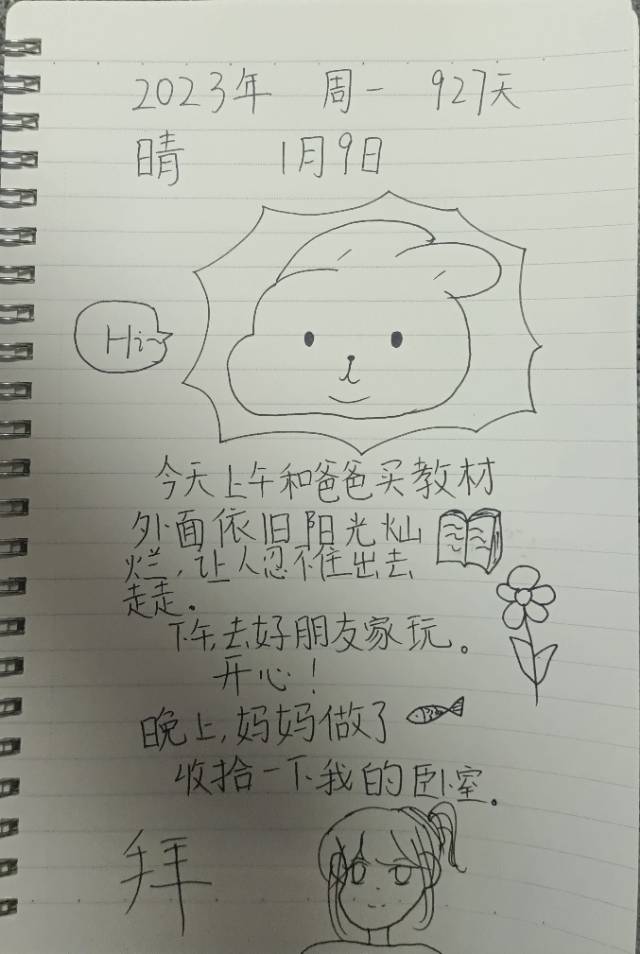 2023年 周一 927天
晴 1月9日
Hi~
今天上午和爸爸买教材
外面依旧阳光灿
烂,让人忍不住出去
走走。
下午,去好朋友家玩。
开心!
晚上,妈妈做了
收拾一下我的卧室。
拜